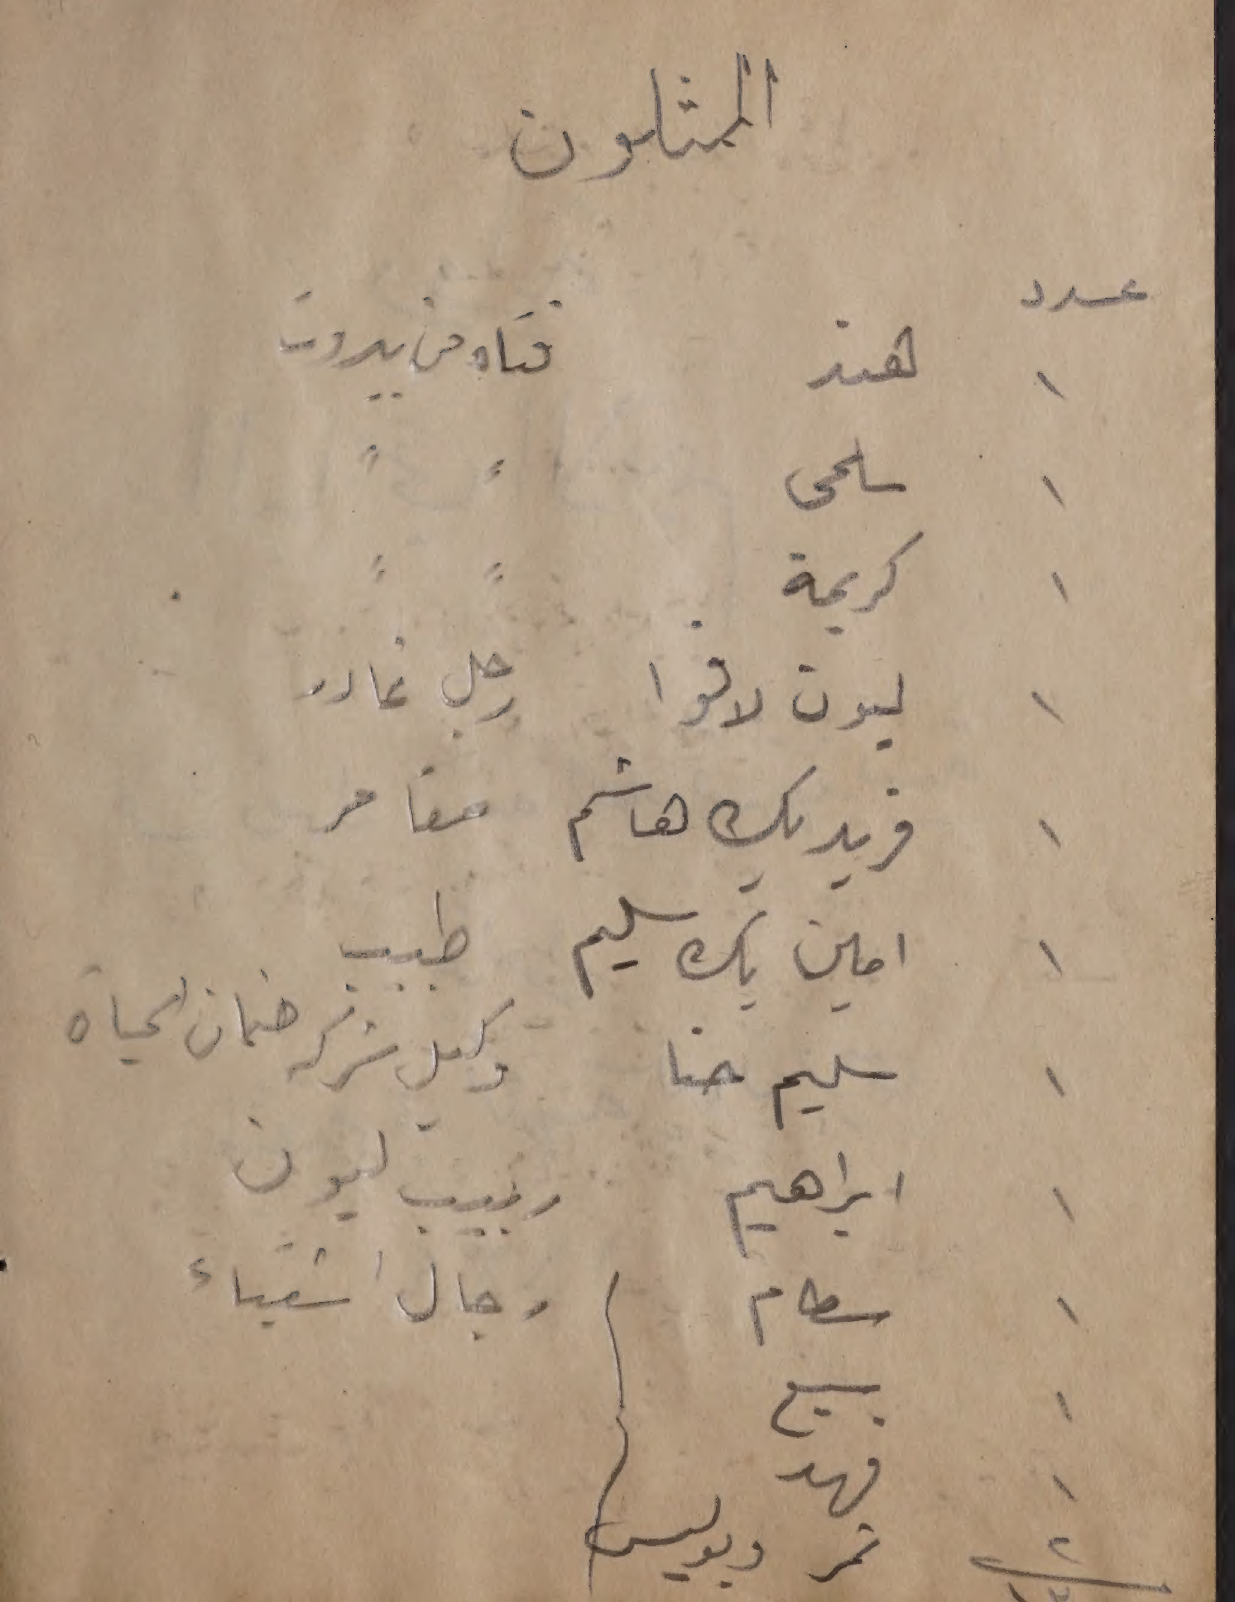 الممثلون
عدد
١ هند فتاه من بيروت
١ سلمى " "
١ كريمة " "
١ ليون لافوا رجل غادر
١ فريد بك هاشم مقامر
١ امين بك سليم طبيب
١ سليم حنا وكيل شركه ضمان الحياة
١ ابراهيم ربيب ليون
١ سطام رجال اشقياء
١
١ فهد
٢ نمر وبوليس
١٣